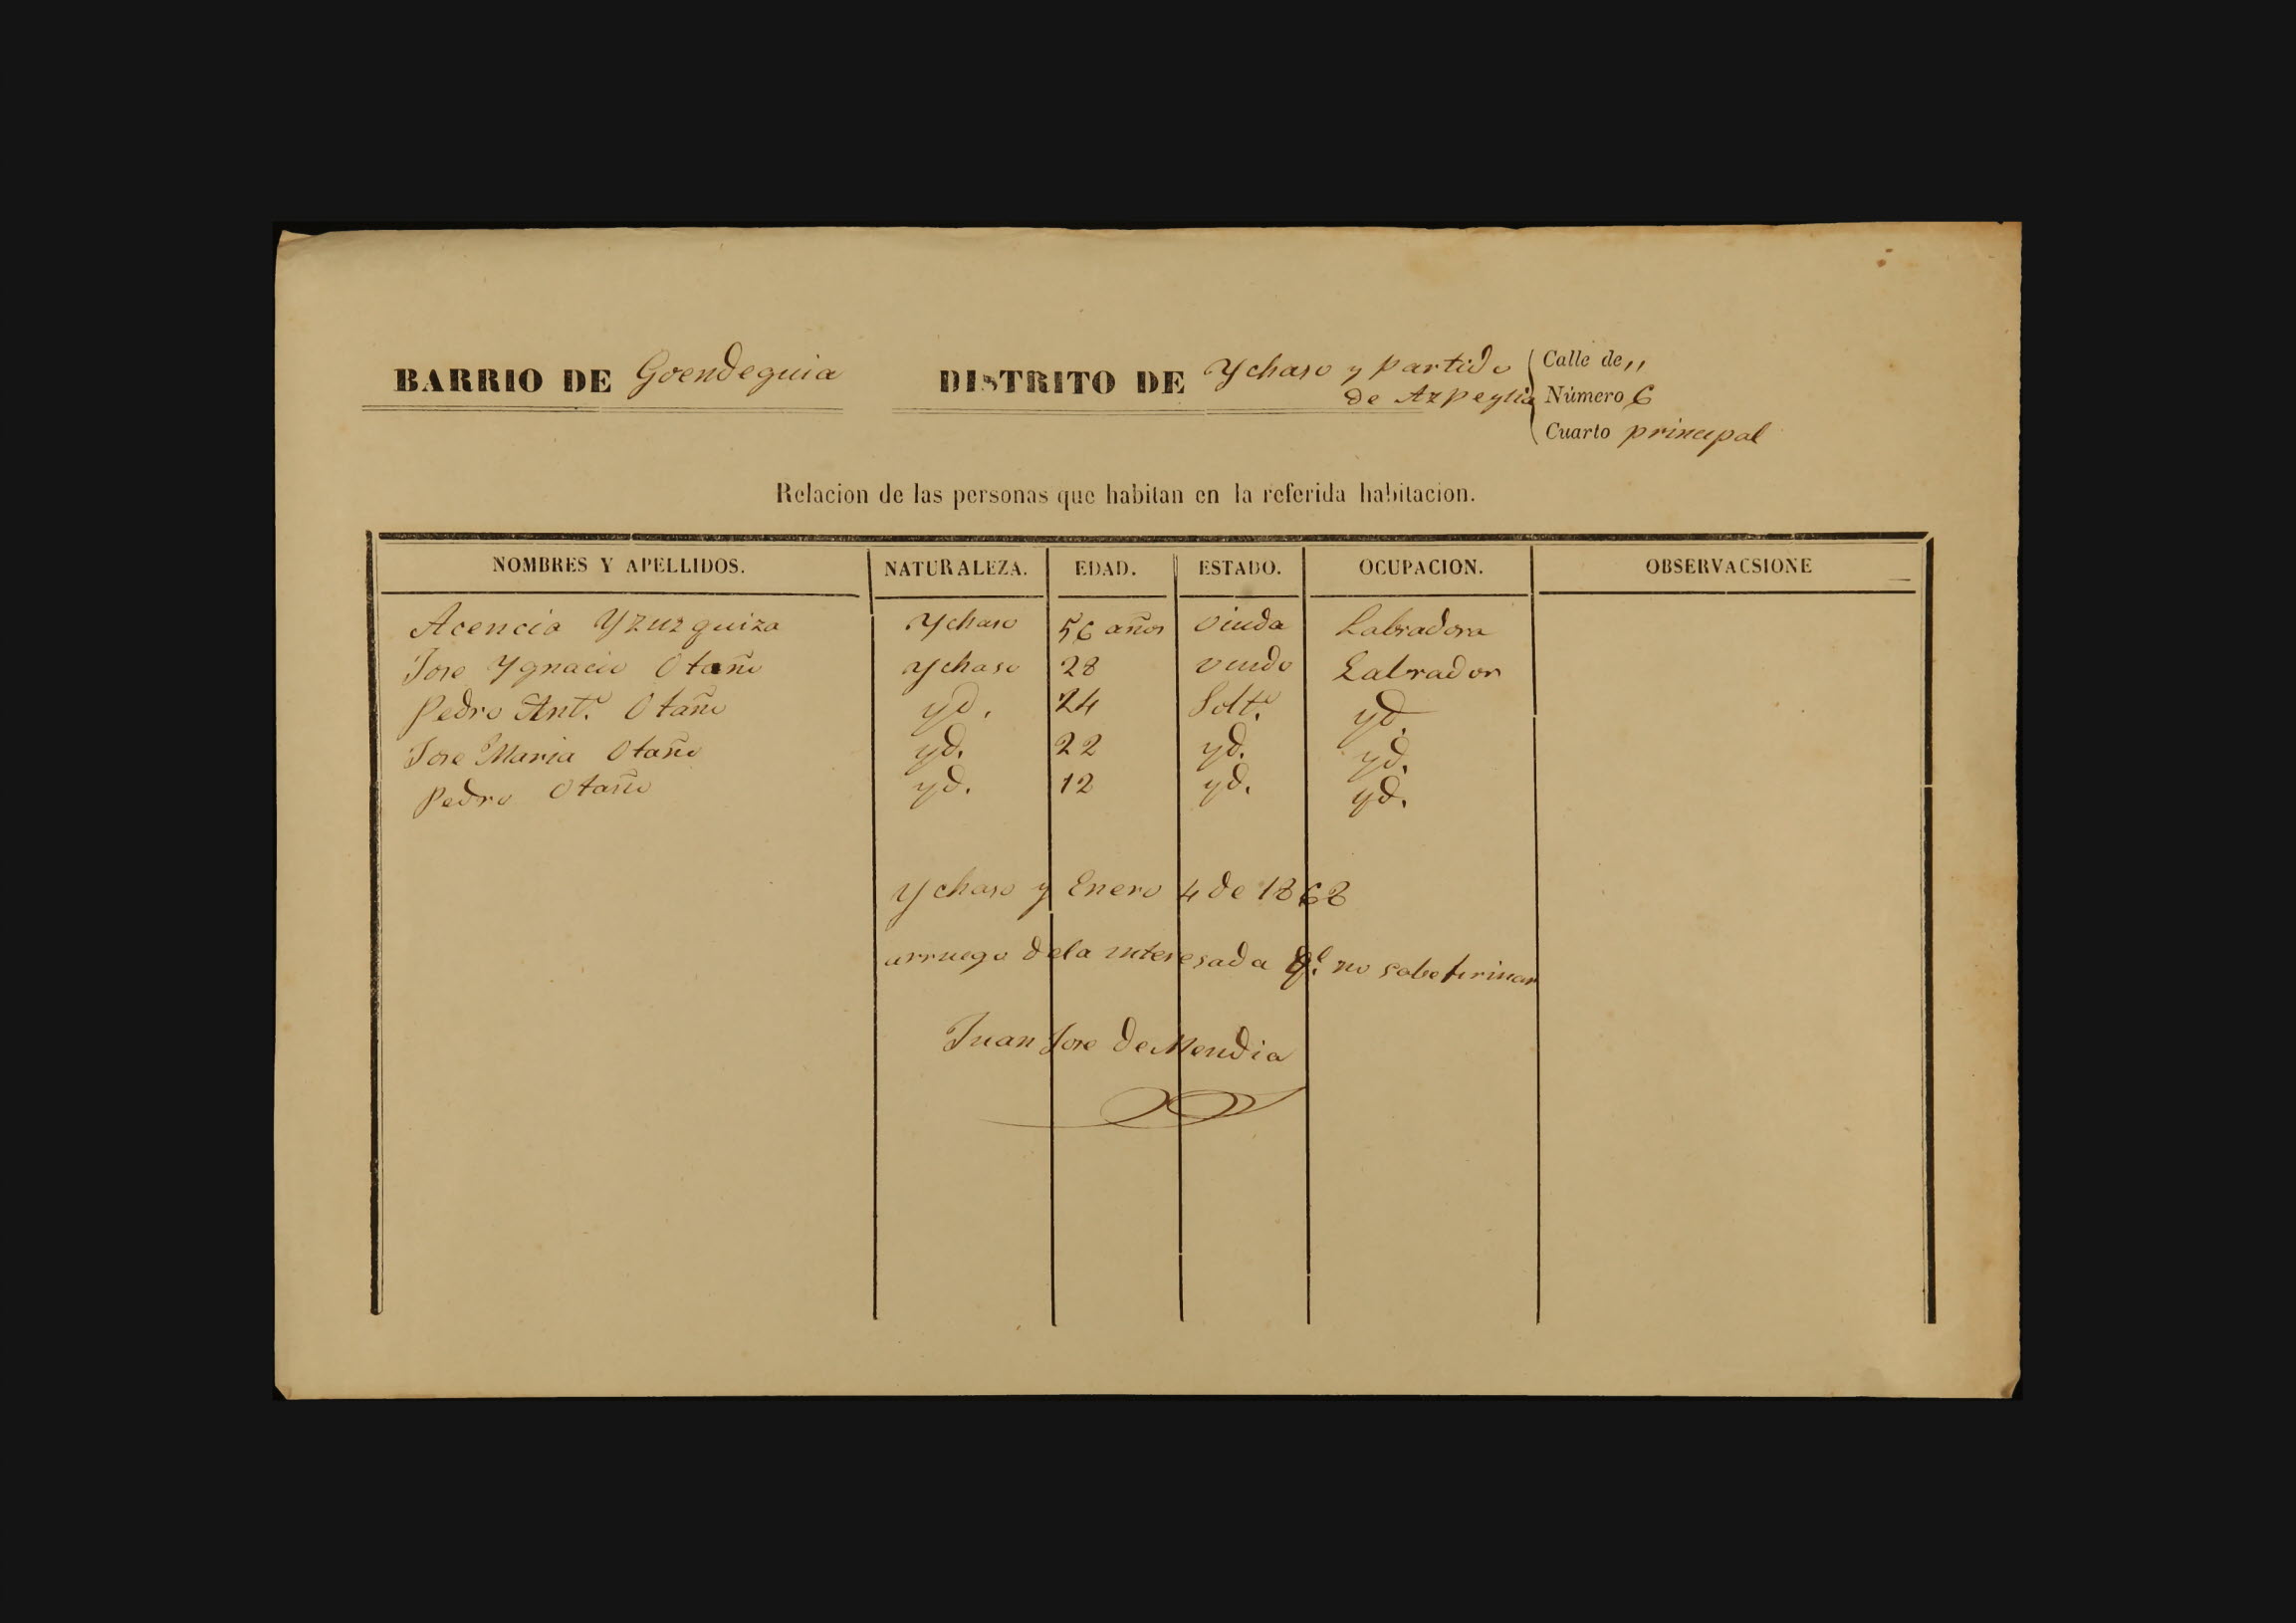 BARRIO DE Goendeguia DISTRITO DE Ychaso y partido
de Azpeytia
Calle de ,,
Número 6
Cuarto principal
Relacion de las personas que habitan en la referida habitacion.
NOMBRES Y APELLIDOS. NATURALEZA. EDAD. ESTADO. OCUPACION. OBSERVACSIONE
Acencia Yzuzquiza Ychaso 56 años viuda Labradora
Jose Ygnacio Otaño Ychaso 28 viudo Labrador
Pedro Ant.º Otaño yd. 24 Solt.º yd.
Jose Maria Otaño yd. 22 yd. yd.
Pedro Otaño yd. 12 yd. yd.
Ychaso y Enero 4 de 1868
arruego dela interesada q.e no sabe firmar
Juan Jose de Mendia